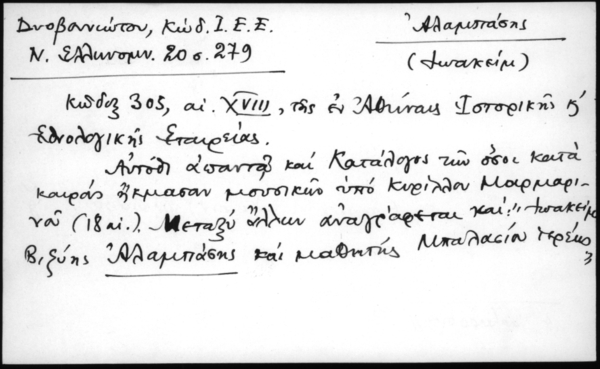 Δυοβουνιώτου, Κώδ. Ι. Ε. Ε.
Ν. Ελληνομν. 20 σ. 279
Ἀλαμπάσης
(Ἰωακείμ)
Κώδιξ 305, αἰ. XVIII, τῆς ἐν Ἀθήναις Ἱστορικῆς κ'
Ἐθνολογικῆς Ἑταιρείας.
Αὐτόθι ἀπαντᾷ καί Κατάλογος τῶν ὅσοι κατά
καιρόν ἤκμασαν μουσικῶν ὑπό Κυρίλλου Μαρμαρι-
νοῦ (18 αἰ.). Μεταξύ ἄλλων ἀναγράφεται καί: "Ἰωακείμ
Βιζύης Ἀλαμπάσης καί μαθητής Μπαλασίου ἱερέως"